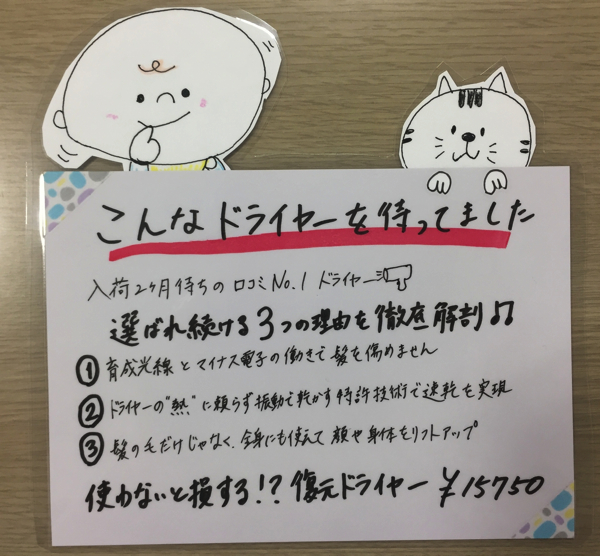 こんなドライヤーを待ってました
入荷2ヶ月待ちの口コミNo.1ドライヤー
選ばれ続ける3つの理由を徹底解剖♫
① 育成光線とマイナス電子の働きで髪を傷めません
② ドライヤーの"熱"に頼らず振動で乾かす特許技術で速乾を実現
③ 髪の毛だけじゃなく、全身にも使えて顔や身体をリフトアップ
使わないと損する!? 復元ドライヤー ¥15750